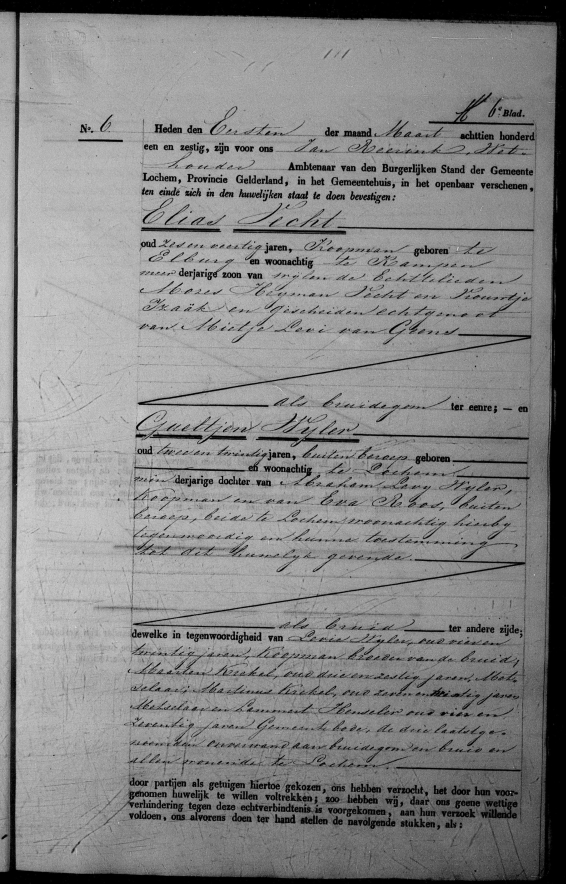 6e Blad.
No. 6. Heden den Eersten der maand Maart achttien honderd
een en zestig, zijn voor ons Jan Reerink, Wet-
houder Ambtenaar van den Burgerlijken Stand der Gemeente
Lochem, Provincie Gelderland, in het Gemeentehuis, in het openbaar verschenen,
ten einde zich in den huwelijken staat te doen bevestigen:
Elias Vecht
oud zesenveertig jaren, Koopman geboren te
Elburg en woonachtig te Kampen
meerderjarige zoon van wylen de Echtelieden
Mozes Heyman Vecht en Vrouwtje
Izaäk en gescheiden echtgenoot
van Mietje Levi van Geens
als bruidegom ter eenre; — en
Gueltjen Wyler
oud twee en twintig jaren, buiten beroep geboren
en woonachtig te Lochem
minderjarige dochter van Abraham Levy Wyler,
Koopman en van Eva Roos, buiten
beroep, beide te Lochem woonachtig hierby
tegenwoordig en hunne toestemming
tot dit huwelyk gevende
als bruid ter andere zijde;
dewelke in tegenwoordigheid van Levie Wyler, oud vier en
twintig jaren, Koopman broeder van de bruid;
Maarten Kiekel, oud drie en zestig jaren, Met-
selaar; Martinus Kiekel, oud zeven en jaren
Metselaar en Lammert Henseler oud vier en
zeventig jaren Gemeentebode, de drie laatstge-
noemden onverwand aan bruidegom en bruid en
allen wonende te Lochem.
door partijen als getuigen hiertoe gekozen, ons hebben verzocht, het door hun voor-
genomen huwelijk te willen voltrekken; zoo hebben wij, daar ons geene wettige
verhindering tegen deze echtverbindtenis is voorgekomen, aan hun verzoek willende
voldoen, ons alvorens doen ter hand stellen de navolgende stukken, als: